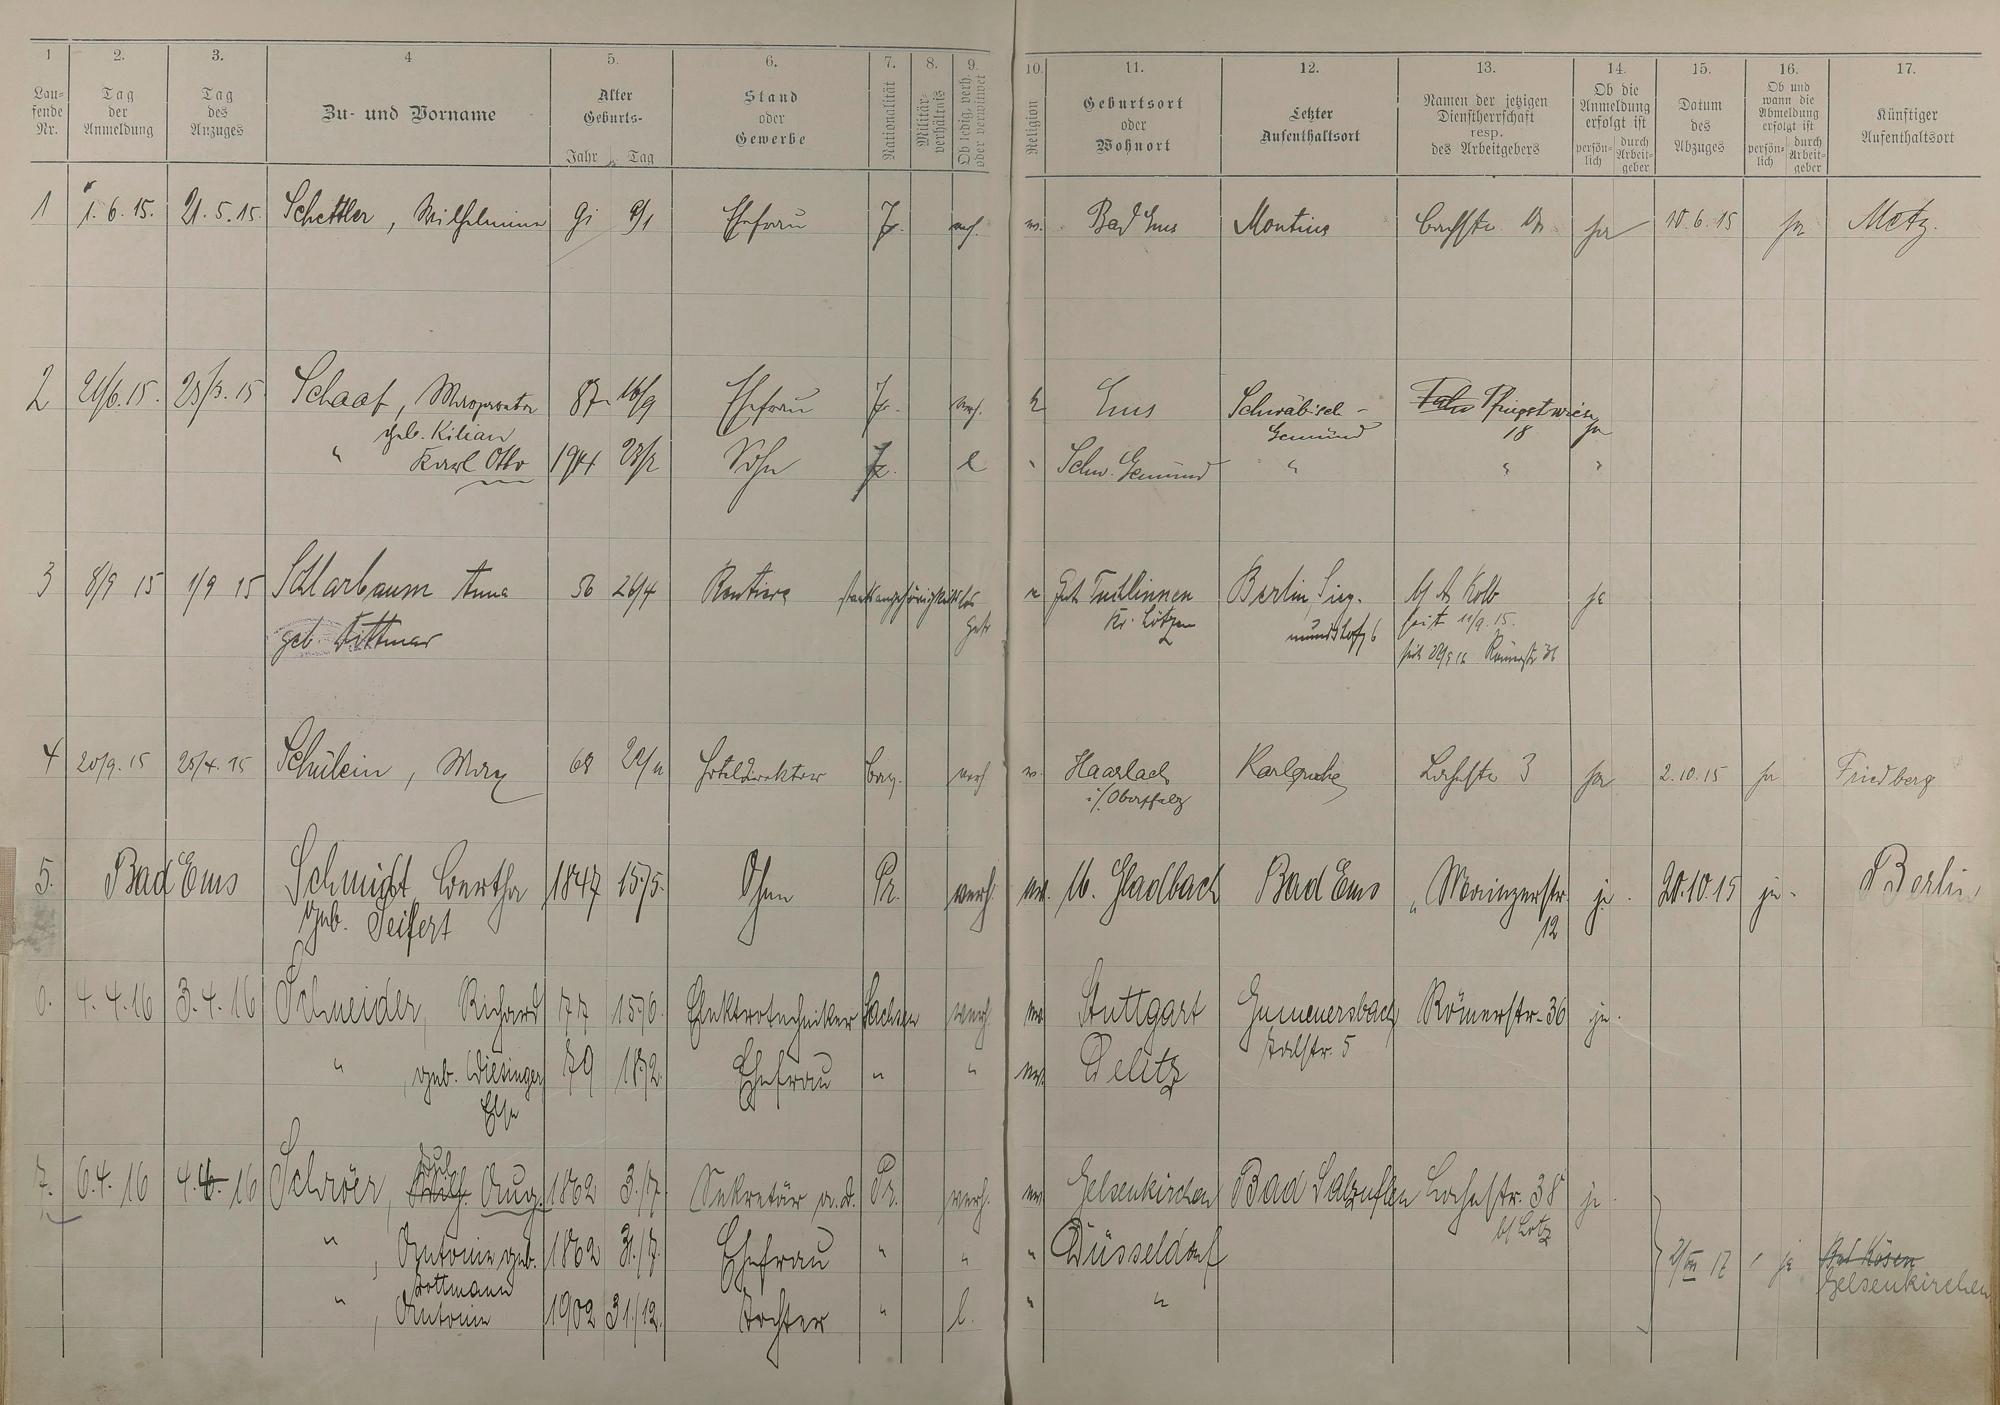 1 2. 3. 4 5. 6. 7. 8. 9. 10. 11. 12. 13. 14. 15. 16. 17.
Lau=
fende
Nr.
Tag
der
Anmeldung
Tag
des
Anzuges
Zu- und Vorname
Alter
Geburts-
Jahr Tag
Stand
oder
Gewerbe
Nationalität
Militär-
verhältnis
Ob ledig, verh.
oder verwitwet
Religion
Geburtsort
oder
Wohnort
Letzter
Aufenthaltsort
Namen der jetzigen
Dienstherrschaft
resp.
des Arbeitgebers
Ob die
Anmeldung
erfolgt ist
persön-
lich
durch
Arbeit-
geber
Datum
des
Abzuges
Ob und
wann die
Abmeldung
erfolgt ist
persön-
lich
durch
Arbeit-
geber
Künftiger
Aufenthaltsort
1 1. 6. 15. 21. 5. 15. Schettler, Wilhelmine 91 9/1 Ehefrau Pr. verh. Bad Ems ja 10. 6. 15 ja Metz.
2 21/6. 15. 23/3. 15 Schaaf, 87 16/9 Ehefrau Pr. verh. Ems Schwäbisch- Pfingstwiese ja
geb. Kilian Gemünd 18
" Karl Otto 1911 Sohn Pr. l " Schw. Gemünd " " "
3 8/9 15 1/9 15 Scharbaum Anna 56 26/4 Rentiere staatsangehörigkeitslos Gut Berlin, Sieg- Kolb ja
geb. Dittmar Kr. Lötzen mundshof 6 seit 11/9. 15.
seit Römerstr
4 20/9. 15 Schülein, Max 68 Hoteldirektor bay. verh Haarlach Karlsruhe Lahnstr 3 ja 2. 10. 15 ja Friedberg
i/ Oberpfalz
5. Bad Ems Schmidt, Bertha 1847 15./5. Ohne Pr. verh. ev. M. Gladbach Bad Ems " Mainzerstr. ja. 20. 10. 15 ja. Berlin
geb. Seifert 12
6. 4. 4. 16 3. 4. 16 Schneider, Richard 77 15./6. Elektrotechniker Sachsen verh. ev. Stuttgart Gummersbach Römerstr. 36 ja.
Talstr. 5
" , geb. Wiesinger 79 18./2. Ehefrau " " ev. Delitz
Else
7. 6. 4. 16 4. 4. 16 Schröer, Aug. 1862 3./7. Sekretär a. d. Pr. verh. ev. Gelsenkirchen Bad Salzuflen Lahnstr. 38 ja.
b/ Lotz
" , Antonie geb. 1862 31./7. Ehefrau " " " Düsseldorf 2/VII 17 ja Bad Kösen
Rottmann Gelsenkirchen
" , Antonie 1902 31./12. Tochter " l. " "